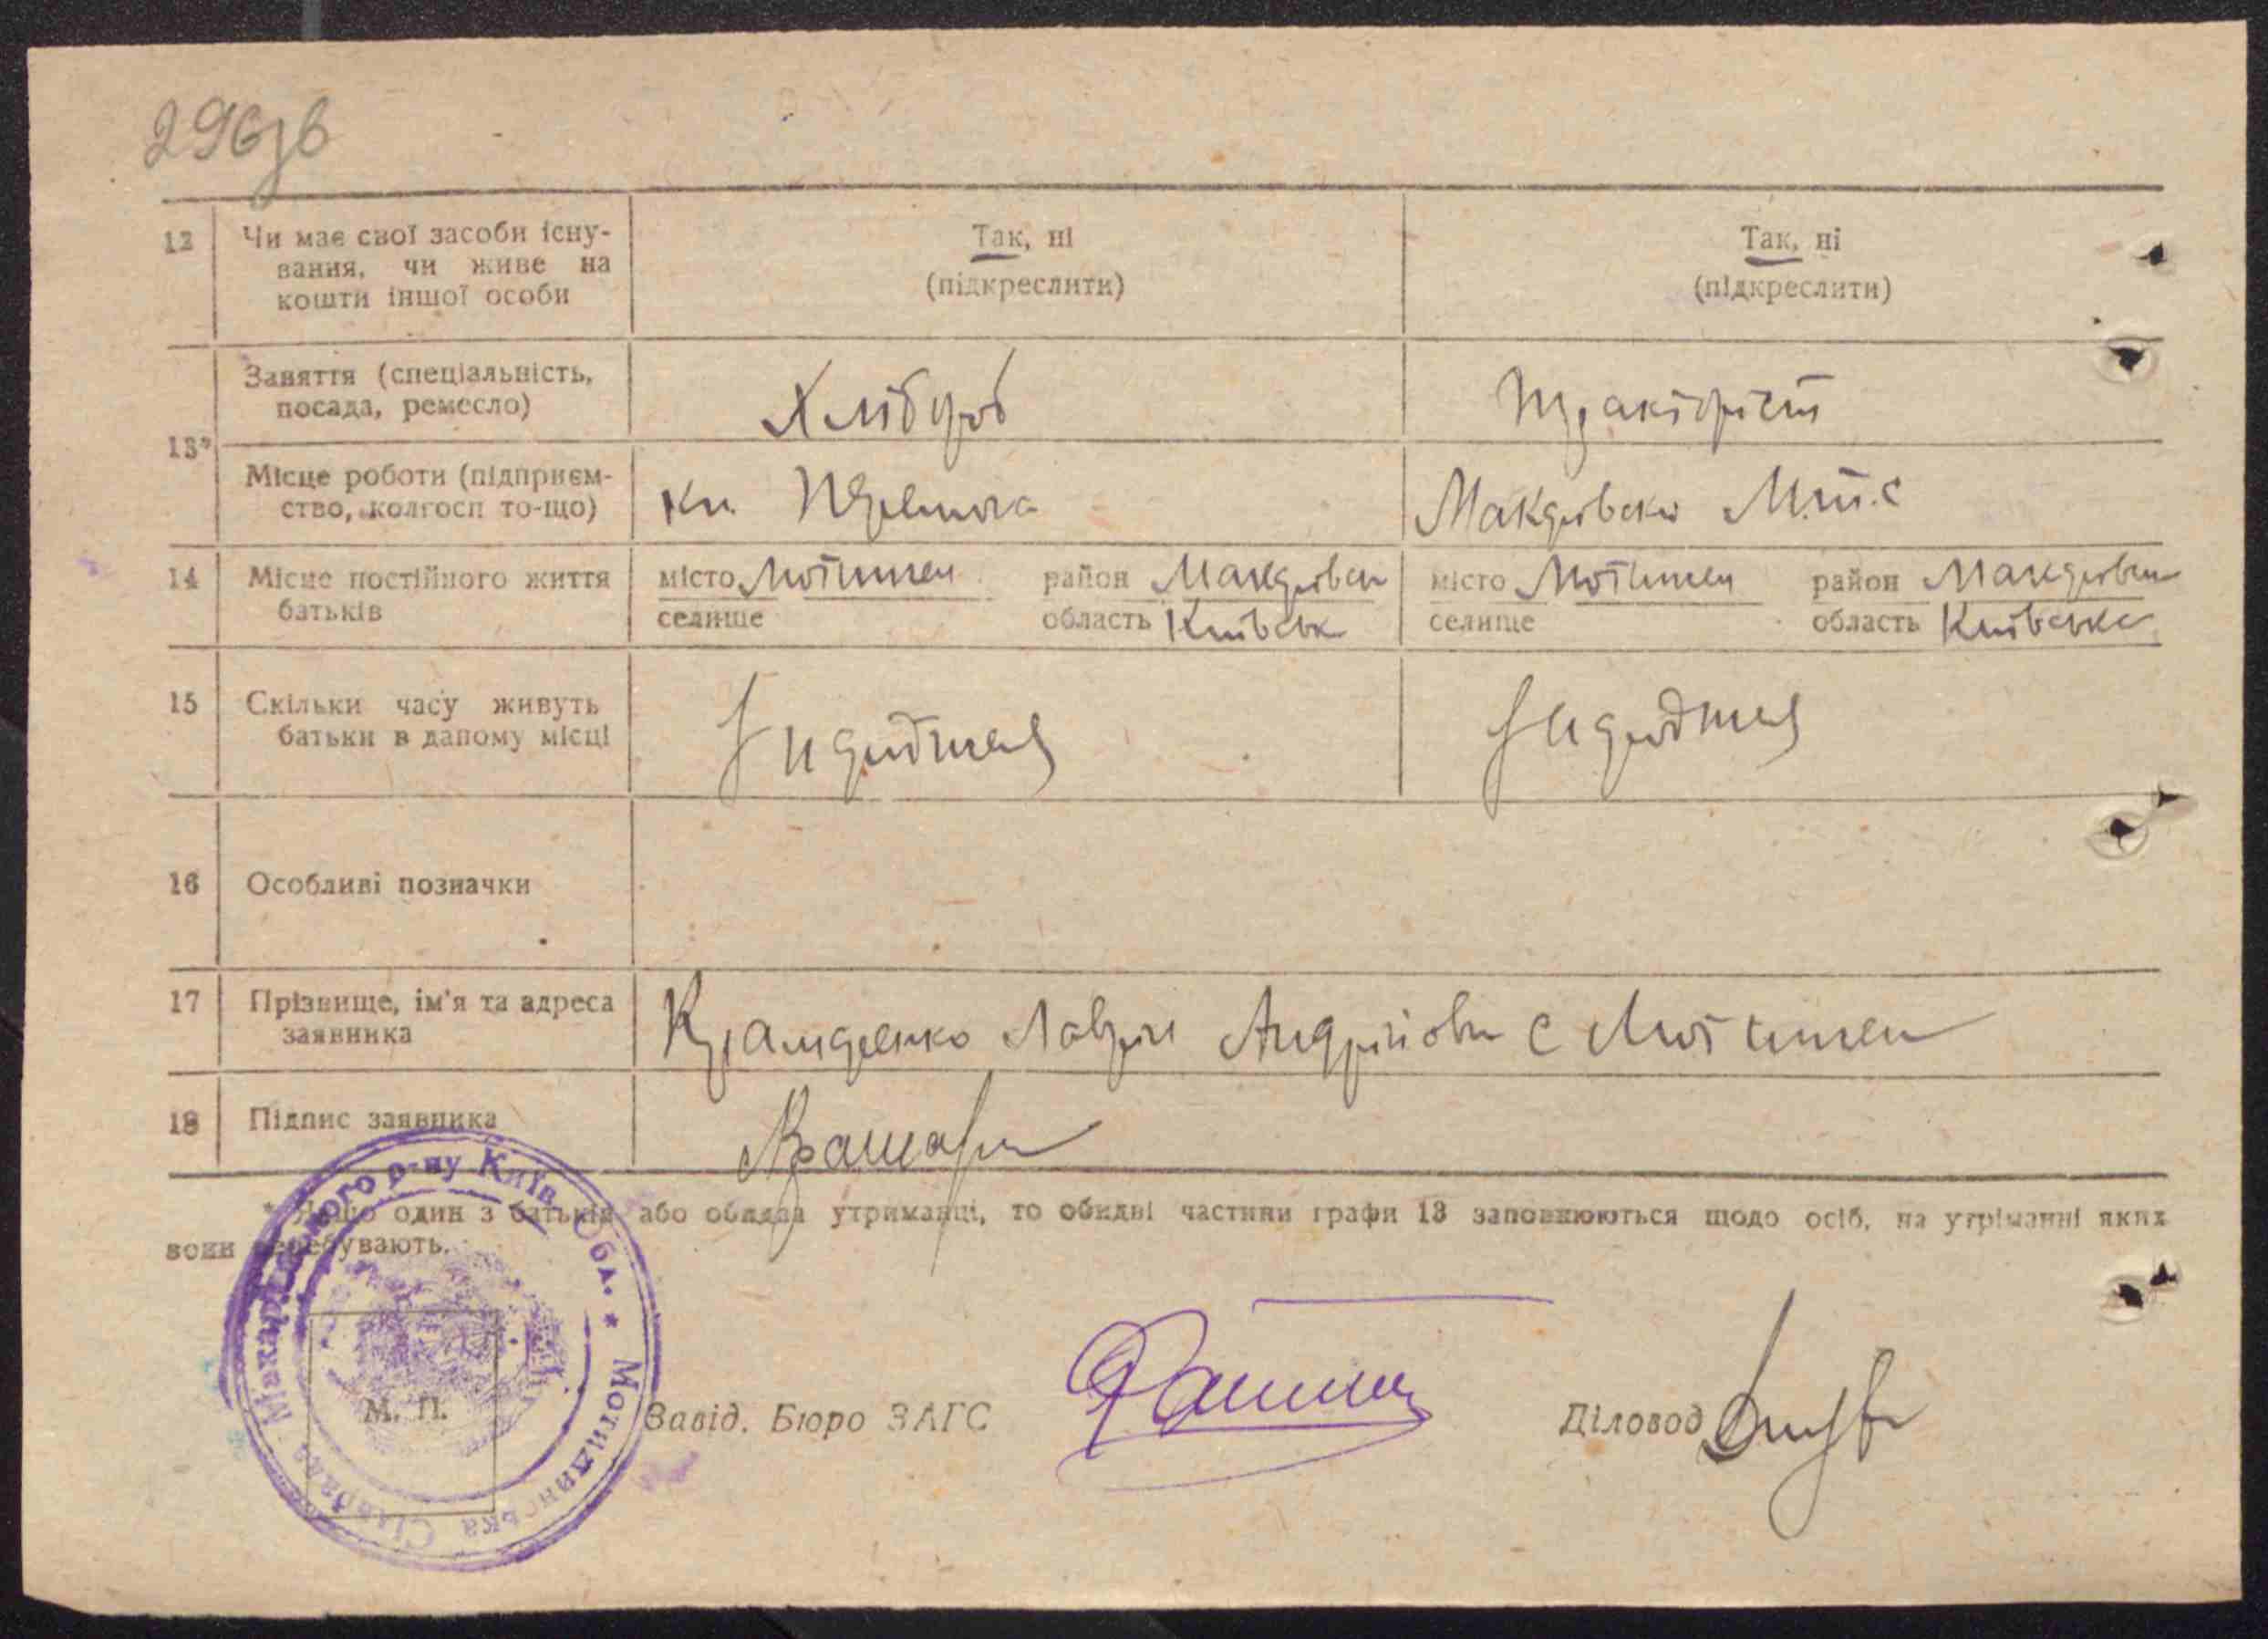 296зв
12 Чи має свої засоби існу- Так, ні Так, ні
вания, чи живе на (підкреслити) (підкреслити)
кошти іншої особи
Заняття (спеціальність, Хлібороб Тракторіст
посада, ремесло)
13*
Місце роботи (підприєм- Макарівска М.т.с
ство, колгосп то-що)
14 Місце постійного життя місто Мотижен район Макарівськ місто Мотижен район Макарівськ
батьків селище область Київськ селище область Київська
15 Скільки часу живуть З народженя З народженя
батьки в даному місці
16 Особливі позначки
17 Прізвище, ім'я та адреса Андрійович с Мотижен
заявника
18 Підпис заявника
* Якщо один з батьків або обидва утриманці, то обидві частини графи 13 заповнюються щодо осіб, на утріманні яких
вони перебувають.
Макарівського р-ну Київ. Обл. * Мотижинська Сільрада
М. П.
Завід. Бюро ЗАГС Діловод